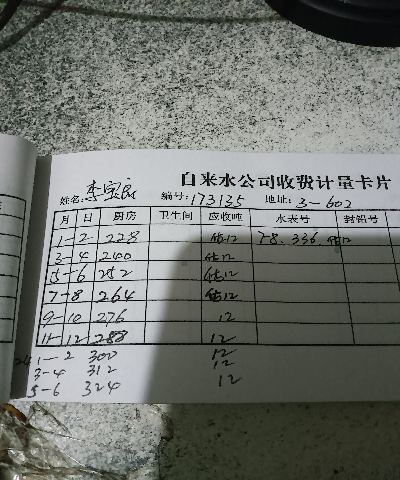 自来水公司收费计量卡片
姓名: 李宝良 编号: 173135 地址: 3-602
月 日 厨房 卫生间 应收吨 水表号 封铅号
1-2 228 估12
3-4 240 估12
5-6 252 估12
7-8 264 估12
9-10 276 12
11-12 288 12
1-2 300 12
3-4 312 12
5-6 324 12